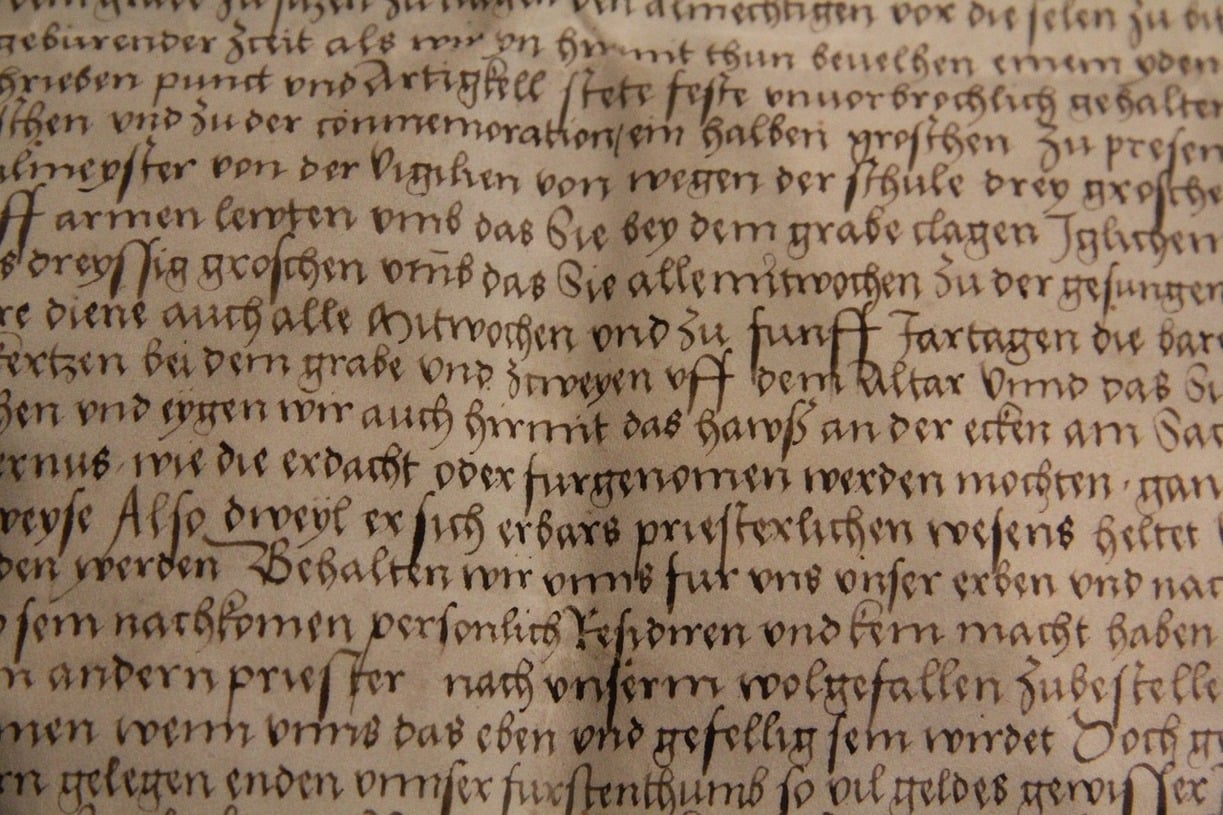 zu sitzen zu den almechtigen vor die selen zu
geburender zceit als wir yn hirmit thun beuelhen einem yden
hrieben punct vnd Artigkell stete feste vnuorbrochlich gehalten
schen vnd zu der conmemoration/ein halben groschen zu presen
lmeyster von der Vigilien von wegen der schule drey grosche
ff armen lewten vmb das Sie bey dem grabe clagen Jglichem
s dreyssig groschen vmb das Sie alle mitwochen zu der gesungen
re diene auch alle Mitwochen vnd zu funff Jartagen die bar
kertzen bei dem grabe vnd zcweyen vff dem Altar Vnnd das Si
hen vnd eygen wir auch hirmit das hawß an der ecken am Sac
ernus wie die erdacht oder furgenomen werden mochten · gan
weyse Also dweyl er sich erbars priesterlichen wesens heltet
den werden Behalten wir vnns fur vns vnser erben vnd nac
sein nachkomen personlich Residiren vnd kein macht haben
n andern priester nach vnserm wolgefallen zubestelle
men wenn vnns das eben vnd gefellig sein wirdet Doch ge
rn gelegen enden vnnser furstenthumb so vil geldes gewisser